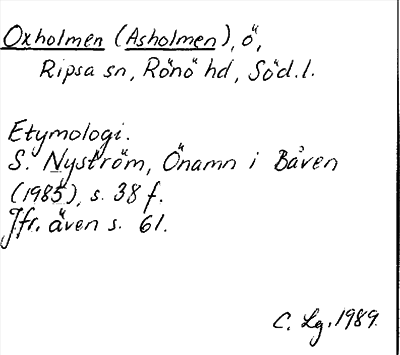 Oxholmen (Asholmen), ö,
Ripsa sn, Rönö hd, Söd. l.
Etymologi.
S. Nyström, Önamn i Båven
(1985), s. 38 f.
Jfr. även s. 61.
C. Lg. 1989.